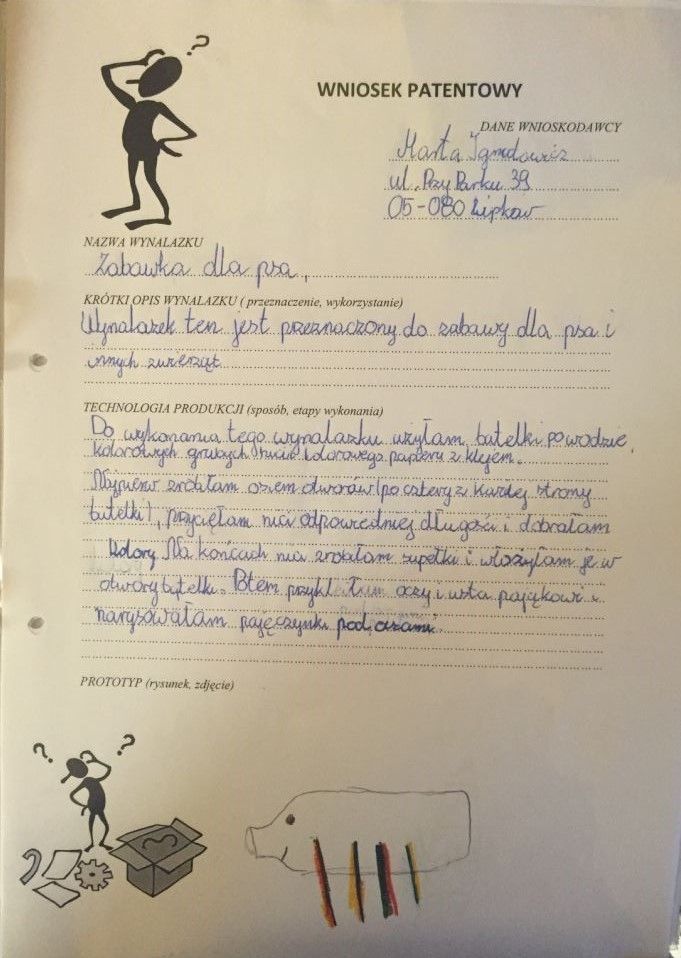 ?
WNIOSEK PATENTOWY
DANE WNIOSKODAWCY
Marta
ul. Przy Parku 39
05-080 Lipków
NAZWA WYNALAZKU
Zabawka dla psa,
KRÓTKI OPIS WYNALAZKU ( przeznaczenie, wykorzystanie)
Wynalazek ten jest przeznaczony do zabawy dla psa i
innych zwierząt
TECHNOLOGIA PRODUKCJI (sposób, etapy wykonania)
Do wykonania tego wynalazku użyłam butelki po wodzie,
kolorowych grubych nici i kolorowego papieru z klejem.
Najpierw zrobiłam osiem otworów (po cztery z każdej strony
butelki), przycięłam nici odpowiedniej długości i dobrałam
kolory. Na końcach nici zrobiłam supełki i włożyłam je w
otwory butelki. Potem przykleiłam oczy i usta pająkowi i
narysowałam pajęczynki pod oczami.
PROTOTYP (rysunek, zdjęcie)
? ?